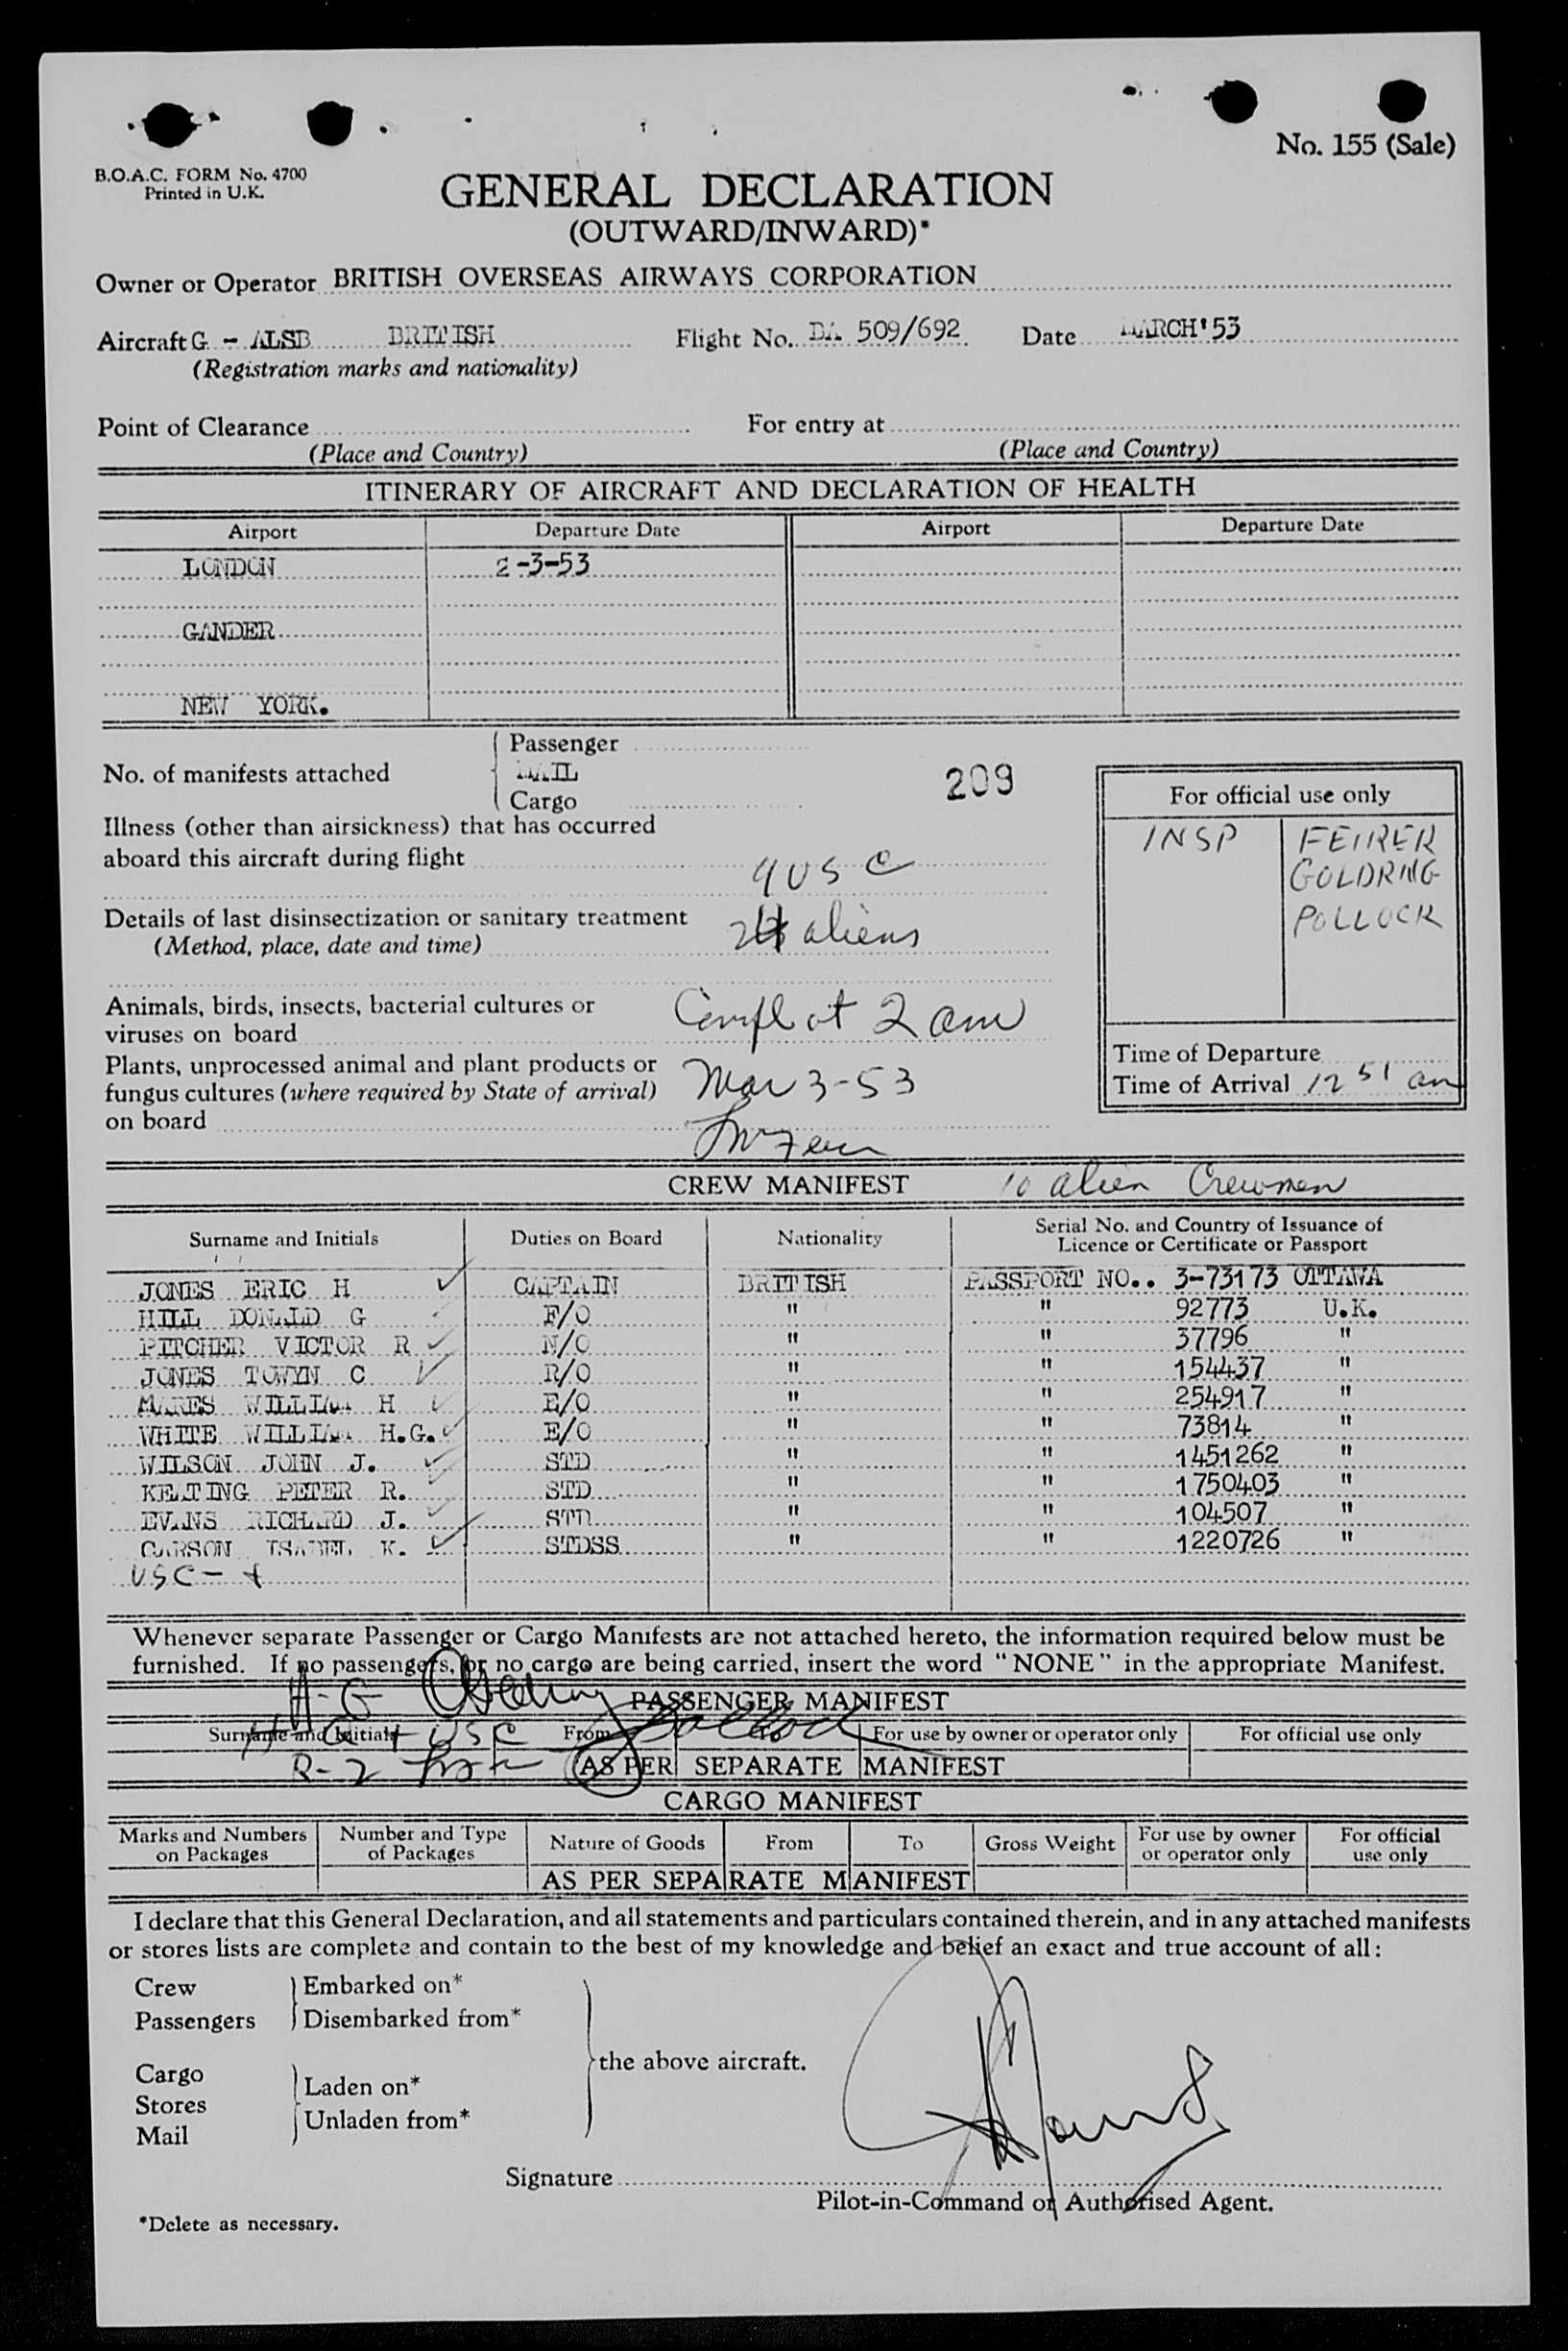 No. 155 (Sale)
B.O.A.C. FORM No. 4700
Printed in U.K.
GENERAL DECLARATION
(OUTWARD/INWARD)*
Owner or Operator BRITISH OVERSEAS AIRWAYS CORPORATION
Aircraft G - ALSB BRITISH Flight No. BA 509/692 Date MARCH'53
(Registration marks and nationality)
Point of Clearance For entry at
(Place and Country) (Place and Country)
ITINERARY OF AIRCRAFT AND DECLARATION OF HEALTH
Airport Departure Date Airport Departure Date
LONDON 2-3-53
GANDER
NEW YORK.
No. of manifests attached
Passenger
MAIL
Cargo
209
For official use only
INSP FEIRER
GOLDRING
POLLOCK
Illness (other than airsickness) that has occurred
aboard this aircraft during flight
9 USC
Details of last disinsectization or sanitary treatment
(Method, place, date and time)
aliens
Animals, birds, insects, bacterial cultures or
viruses on board
Compl at 2 am
Plants, unprocessed animal and plant products or
fungus cultures (where required by State of arrival)
on board
Mar 3-53
Time of Departure
Time of Arrival 12 51 am
CREW MANIFEST 10 alien Crewmen
Surname and Initials Duties on Board Nationality Serial No. and Country of Issuance of
Licence or Certificate or Passport
JONES ERIC H CAPTAIN BRITISH PASSPORT NO.. 3-73173 OTTAWA
HILL DONALD G F/O " " 92773 U.K.
PITCHER VICTOR R N/O " " 37796 "
JONES TOWYN C R/O " " 154437 "
MARES WILLIAM H E/O " " 254917 "
WHITE WILLIAM H.G. E/O " " 73814 "
WILSON JOHN J. STD " " 1451262 "
KEATING PETER R. STD " " 1750403 "
EVANS RICHARD J. STD " " 104507 "
CARSON ISABEL K. STDSS " " 1220726 "
USC -
Whenever separate Passenger or Cargo Manifests are not attached hereto, the information required below must be
furnished. If no passengers, or no cargo are being carried, insert the word "NONE" in the appropriate Manifest.
PASSENGER MANIFEST
Surname and Initials From For use by owner or operator only For official use only
USC
AS PER SEPARATE MANIFEST
CARGO MANIFEST
Marks and Numbers on Packages Number and Type of Packages Nature of Goods From To Gross Weight For use by owner or operator only For official use only
AS PER SEPARATE MANIFEST
I declare that this General Declaration, and all statements and particulars contained therein, and in any attached manifests
or stores lists are complete and contain to the best of my knowledge and belief an exact and true account of all:
Crew Embarked on*
Passengers Disembarked from*
the above aircraft.
Cargo
Stores Laden on*
Mail Unladen from*
Signature
Pilot-in-Command or Authorised Agent.
*Delete as necessary.